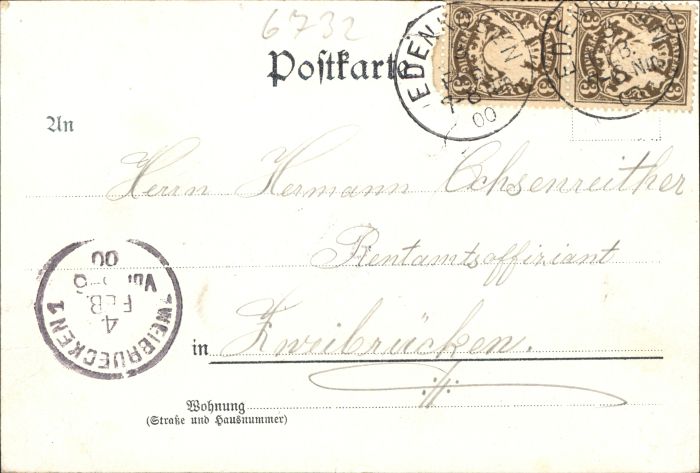 6732
Postkarte
EDENKOBEN
00
EDENKOBEN
3 3
3 3
An
Herrn Hermann Ochsenreither
Rentamtsoffiziant
in Zweibrücken.
ZWEIBRUECKEN 1
4
FEB
00
Wohnung
(Straße und Hausnummer)